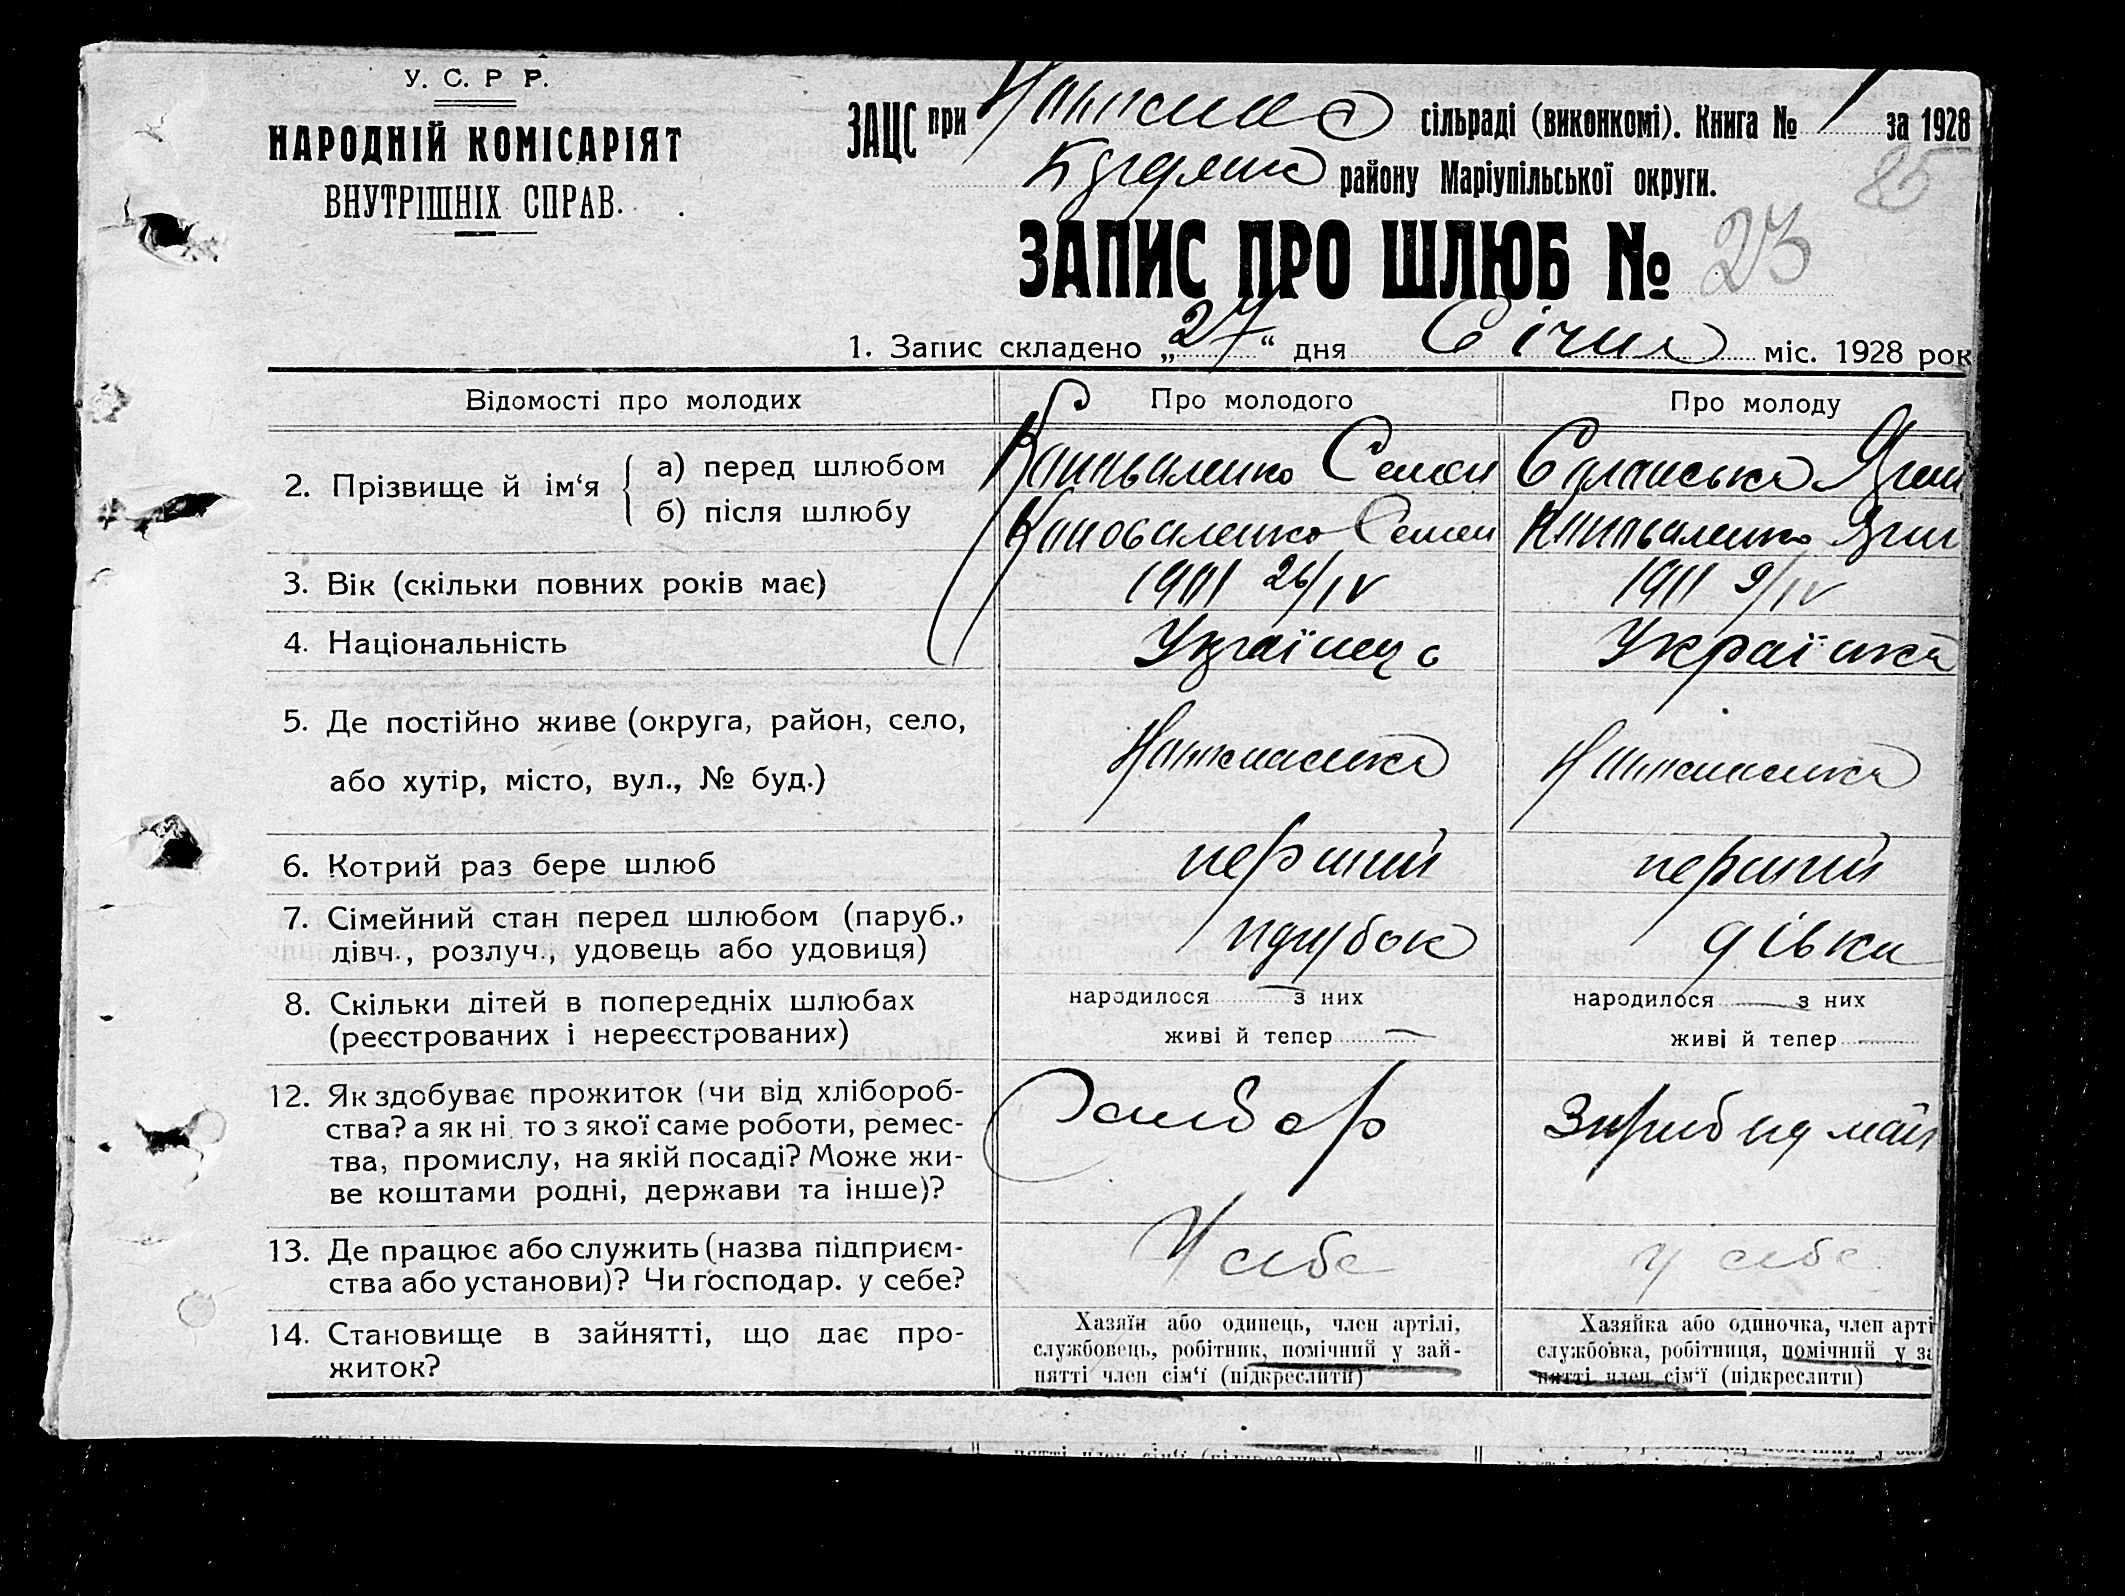 У. С. Р Р.
НАРОДНІЙ КОМІСАРІЯТ
ВНУТРІШНІХ СПРАВ.
ЗАЦС при сільраді (виконкомі). Книга № 1 за 1928
району Маріупільської округи.
85
ЗАПИС ПРО ШЛЮБ № 23
1. Запис складено „27“ дня Січня міс. 1928 рок
Відомості про молодих Про молодого Про молоду
2. Прізвище й ім‘я { а) перед шлюбом Коноваленко Семен
б) після шлюбу Коноваленко Семен Коноваленко
3. Вік (скільки повних років має) 26/IV 1911 9/IV
4. Національність Українець Українка
5. Де постійно живе (округа, район, село,
або хутір, місто, вул., № буд.)
6. Котрий раз бере шлюб перший перший
7. Сімейний стан перед шлюбом (паруб.,
дівч., розлуч., удовець або удовиця) парубок дівка
8. Скільки дітей в попередніх шлюбах народилося — з них народилося — з них
(реєстрованих і нереєстрованих) живі й тепер — живі й тепер —
12. Як здобуває прожиток (чи від хлібороб-
ства? а як ні, то з якої саме роботи, ремес-
тва, промислу, на якій посаді? Може жи-
ве коштами родні, держави та інше)?
13. Де працює або служить (назва підприєм-
ства або установи)? Чи господар. у себе? У себе у себе
14. Становище в зайнятті, що дає про-
житок?
Хазяїн або одинець, член артілі,
службовець, робітник, помічний у зай-
нятті член сім‘ї (підкреслити)
Хазяйка або одиночка, член арті
службовка, робітниця, помічний у за
нятті член сім‘ї (підкреслити)